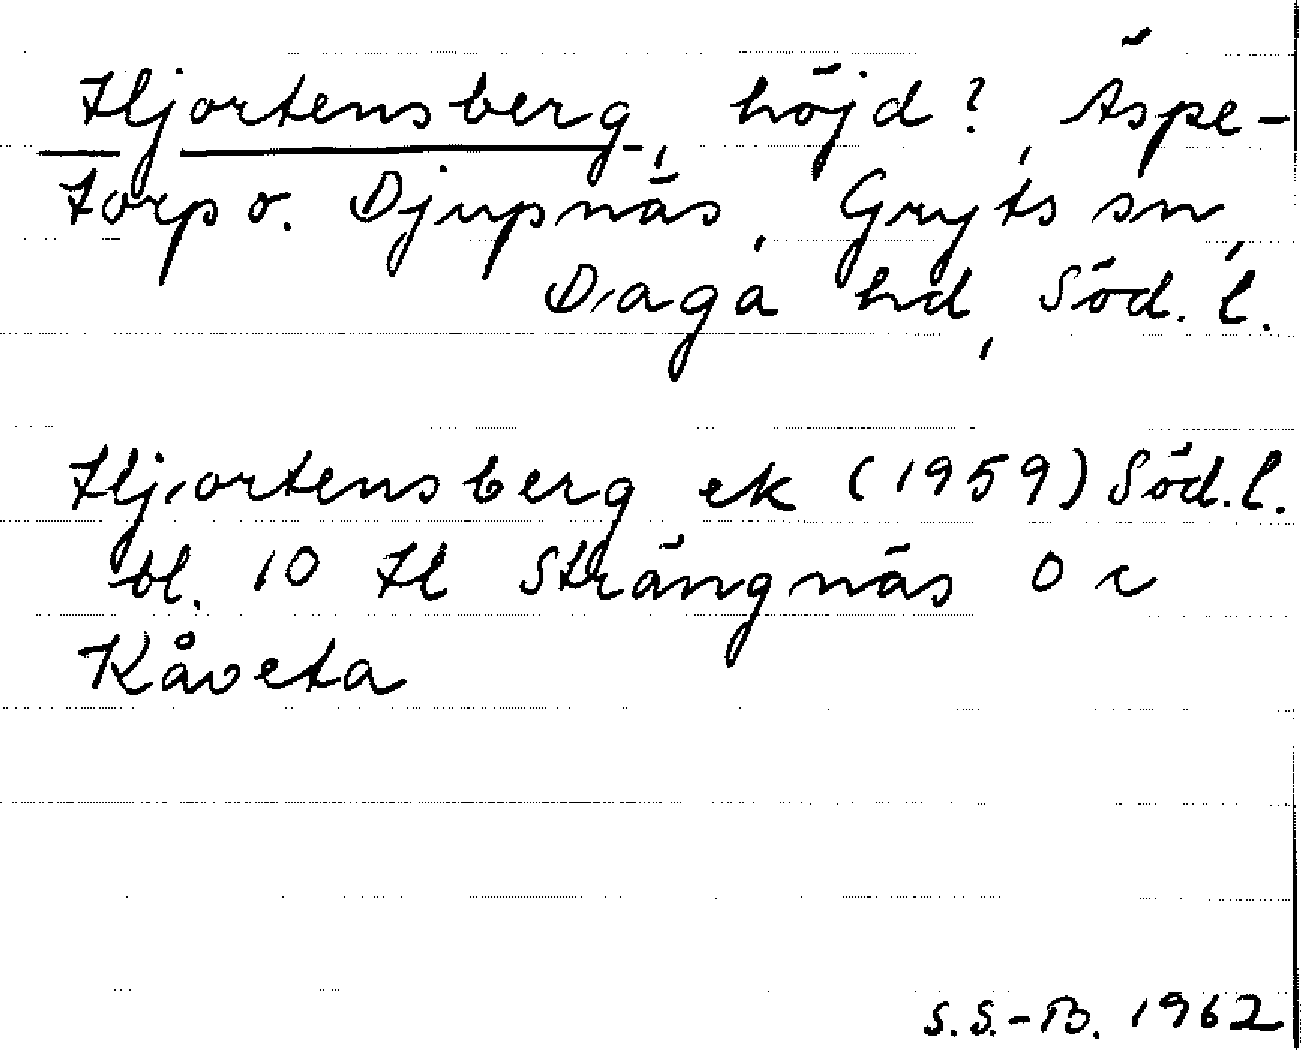 Hjortensberg, höjd?, Äspe-
torp o. Djupnäs, Gryts sn,
Daga hd, Söd. l.
Hjortensberg ek (1959) Söd. l.
bl. 10 H Strängnäs 0 c
Kåveta
S.S.-B. 1962